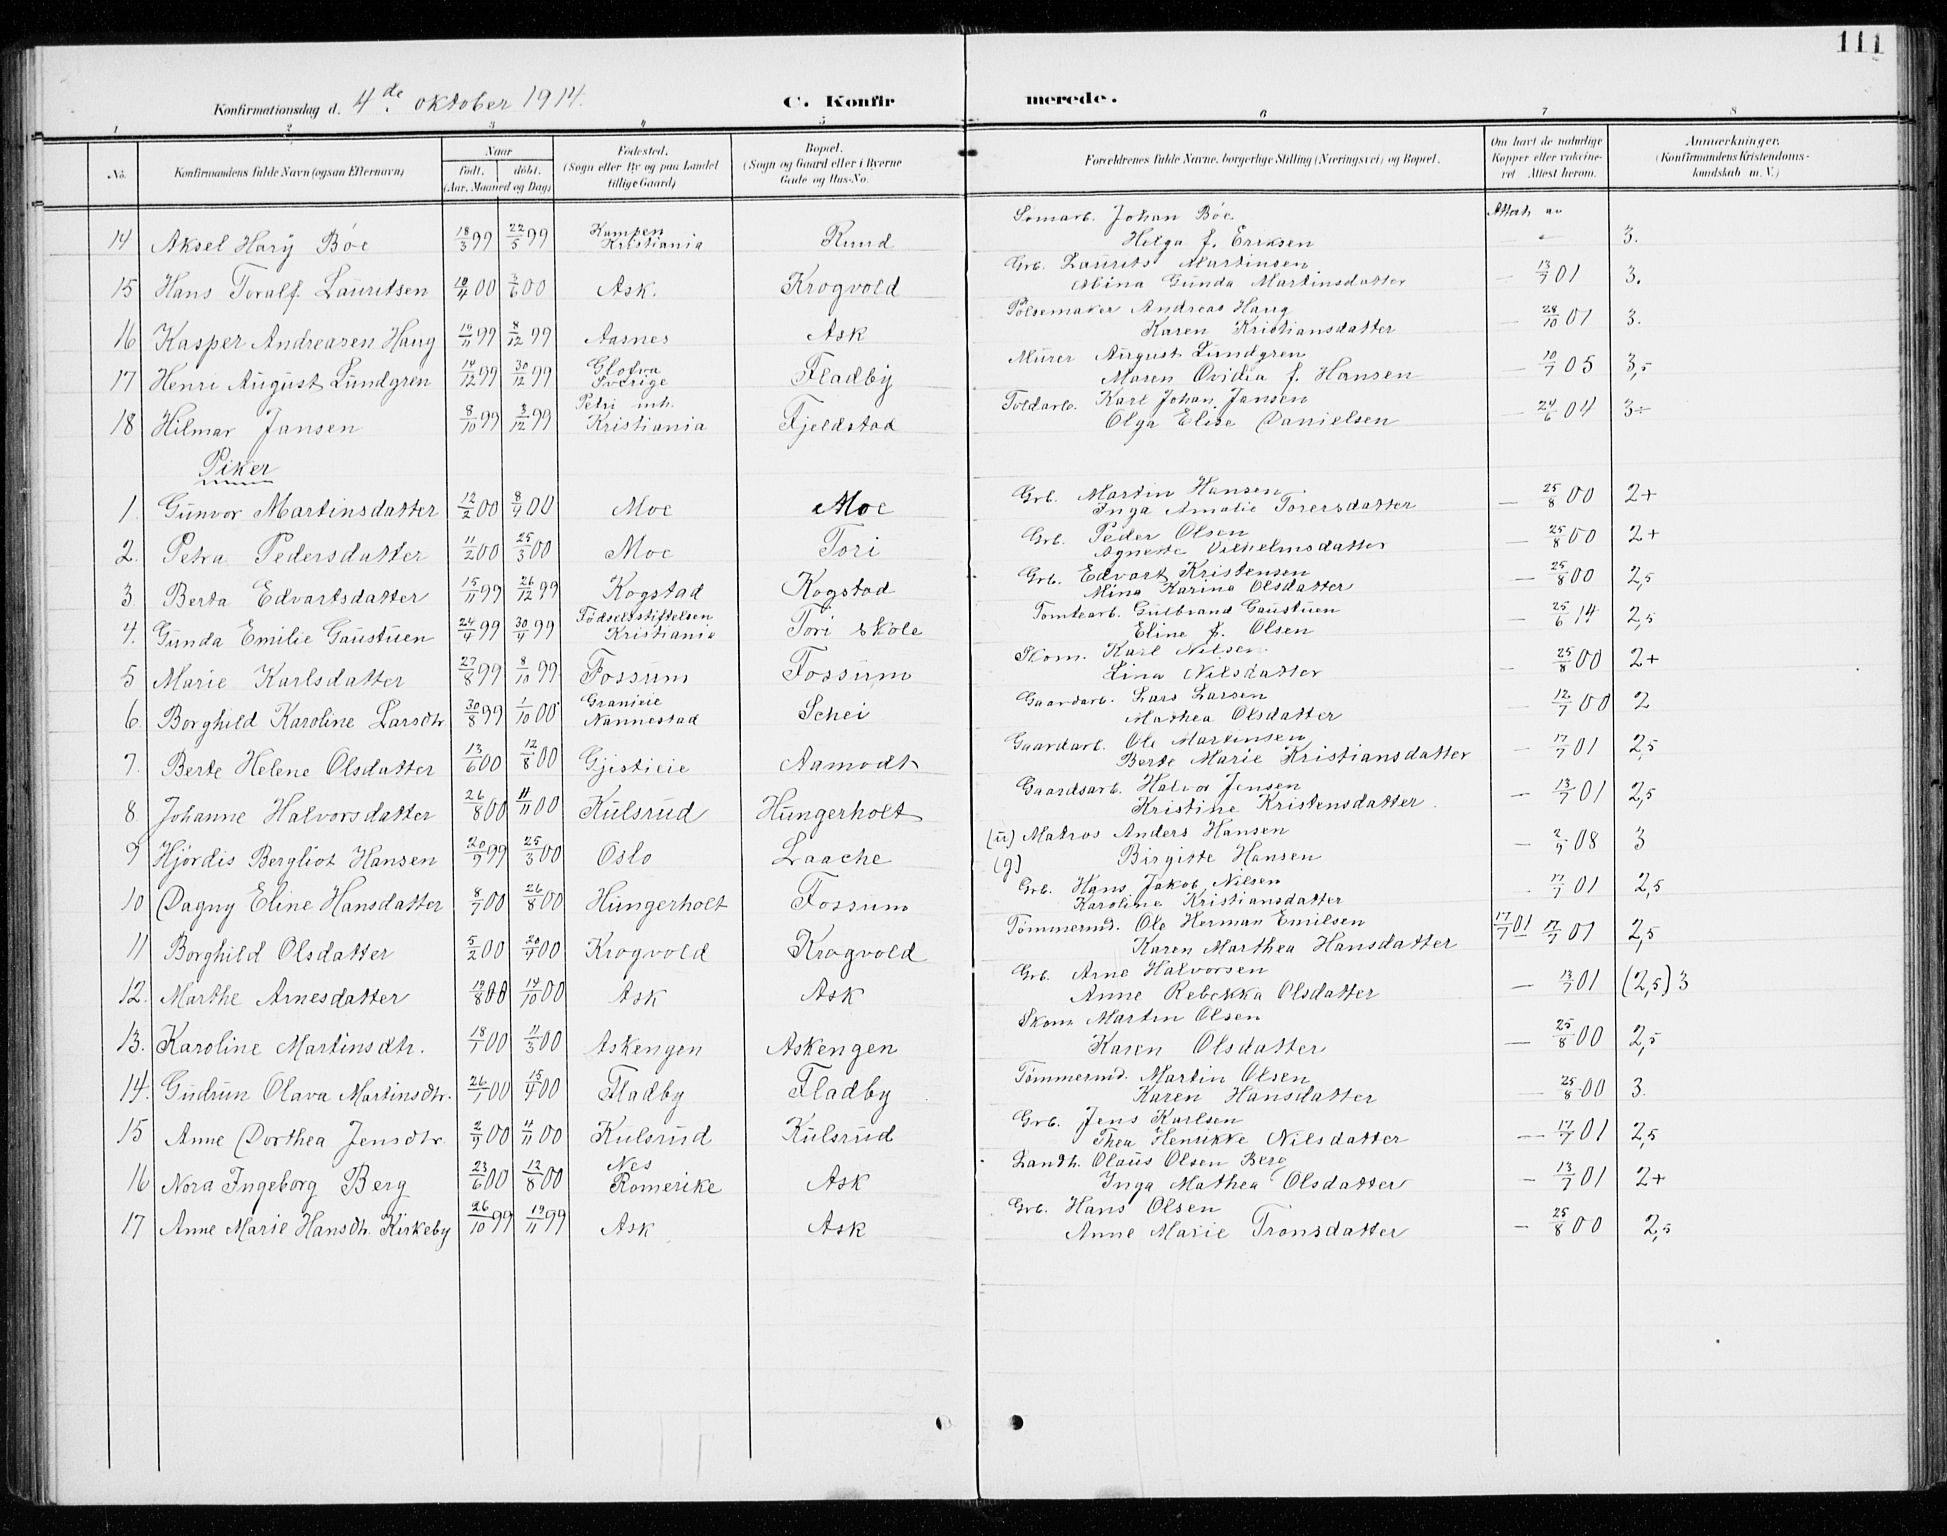 111
Konfirmationsdag d. 4de oktober 1914.
C. Konfirmerede.
1 2 3 4 5 6 7 8
No. Konfirmandens fulde Navn (ogsaa Efternavn) Naar født. døbt. (Aar, Maaned og Dag) Fødested. (Sogn eller By og paa Landet tillige Gaard) Bopæl. (Sogn og Gaard eller i Byerne Gade og Hus-No. Forældrenes fulde Navne, borgerlige Stilling (Næringsvei) og Bopæl. Om havt de naturlige Kopper eller vakcineret Attest herom. Anmærkninger. (Konfirmandens Kristendomskundskab m. V.)
14 Aksel Hary Bøe 18/3 99 22/5 99 Kampen Kristiania Ruud Johan Bøe Helga f. Eriksen 3.
15 Hans Toralf Lauritsen 00 3/6 00 Ask. Krogvold Grb. Laurits Martinsen Gunda Martinsdatter — 13/7 01 3.
16 Kasper Andreasen Haug 99 8/12 99 Aasnes Ask Pølsemaker Andreas Haug Karen Kristiansdatter — 28/10 01 3.
17 Henri August Lundgren 14/12 99 30/12 99 Sverige Fladby Murer August Lundgren Maren Ovidia f. Hansen — 10/7 05 3,5
18 Hilmar Jansen 8/10 99 3/12 99 Petri mh. Kristiania Fjeldstad Toldarb. Karl Johan Jansen Olga Elise Danielsen — 24/6 04 3÷
Piker
1. Gunvor Martinsdatter 12/2 00 00 Moe Moe Grb. Martin Hansen Inga Amalie Torersdatter — 25/8 00 2+
2. Petra Pedersdatter 11/2 00 25/3 00 Moe Tori Grb. Peder Olsen Agnethe Vilhelmsdatter — 25/8 00 2+
3 Berta Edvartsdatter 15/11 99 26/12 99 Kogstad Kogstad Grb. Edvart Kristensen Karina Olsdatter — 25/8 00 2,5
4. Gunda Emilie Gaustuen 99 99 Fødselsstiftelsen Kristiania Tori skole Tomtearb. Gulbrand Gaustuen Eline f. Olsen — 25/6 14 2,5
5 Marie Karlsdatter 27/8 99 8/10 99 Fossum Fossum Skom. Karl Nilsen Lina Nilsdatter — 25/8 00 2+
6. Borghild Karoline Larsdtr 30/8 99 1/10 00 Nannestad Schei Gaardarb. Lars Larsen Mathea Olsdatter — 12/7 00 2
7. Berte Helene Olsdatter 13/6 00 12/8 00 Gjistieie Aamodt Gaardarb. Ole Martinsen Berte Marie Kristiansdatter — 17/7 01 2,5
8 Johanne Halvorsdatter 26/8 00 11/11 00 Kulsrud Hungerholt Gaardsarb. Halvor Jensen Kristine Kristensdatter. — 13/7 01 2,5
9 Hjørdis Bergliot Hansen 20/9 99 25/3 00 Oslo Laache (u) Matros Anders Hansen (g) Birgitte Hansen — 08 3
10 Dagny Eline Hansdatter 8/7 00 26/8 00 Hungerholt Fossum Grb. Hans Jakob Nilsen Karoline Kristiansdatter 17/7 01 2,5
11 Borghild Olsdatter 5/2 00 00 Krogvold Krogvold Tømmermd. Ole Herman Emilsen Karen Marthea Hansdatter 17/7 01 17/7 01 2,5
12. Marthe Arnesdatter 19/8 00 14/10 00 Ask Ask Grb. Arne Halvorsen Anne Rebekka Olsdatter — 13/7 01 (2,5) 3
13. Karoline Martinsdtr. 18/1 00 11/3 00 Askengen Askengen Skom Martin Olsen Karen Olsdatter — 25/8 00 2,5
14. Gudrun Olava Martinsdtr. 00 00 Fladby Fladby Tømmermd. Martin Olsen Karen Hansdatter — 25/8 00 3.
15 Anne Dorthea Jensdtr 2/9 00 4/11 00 Kulsrud Kulsrud Grb. Jens Karlsen Thea Henrikke Nilsdatter — 17/7 01 2,5
16 Nora Ingeborg Berg 23/6 00 12/8 00 Nes Romerike Ask Landh. Olaus Olsen Berg Inga Mathea Olsdatter — 13/7 01 2+
17 Anne Marie Hansdtr. Kirkeby 26/10 99 19/11 99 Ask Ask Grb. Hans Olsen Anne Marie Tronsdatter — 25/8 00 2,5